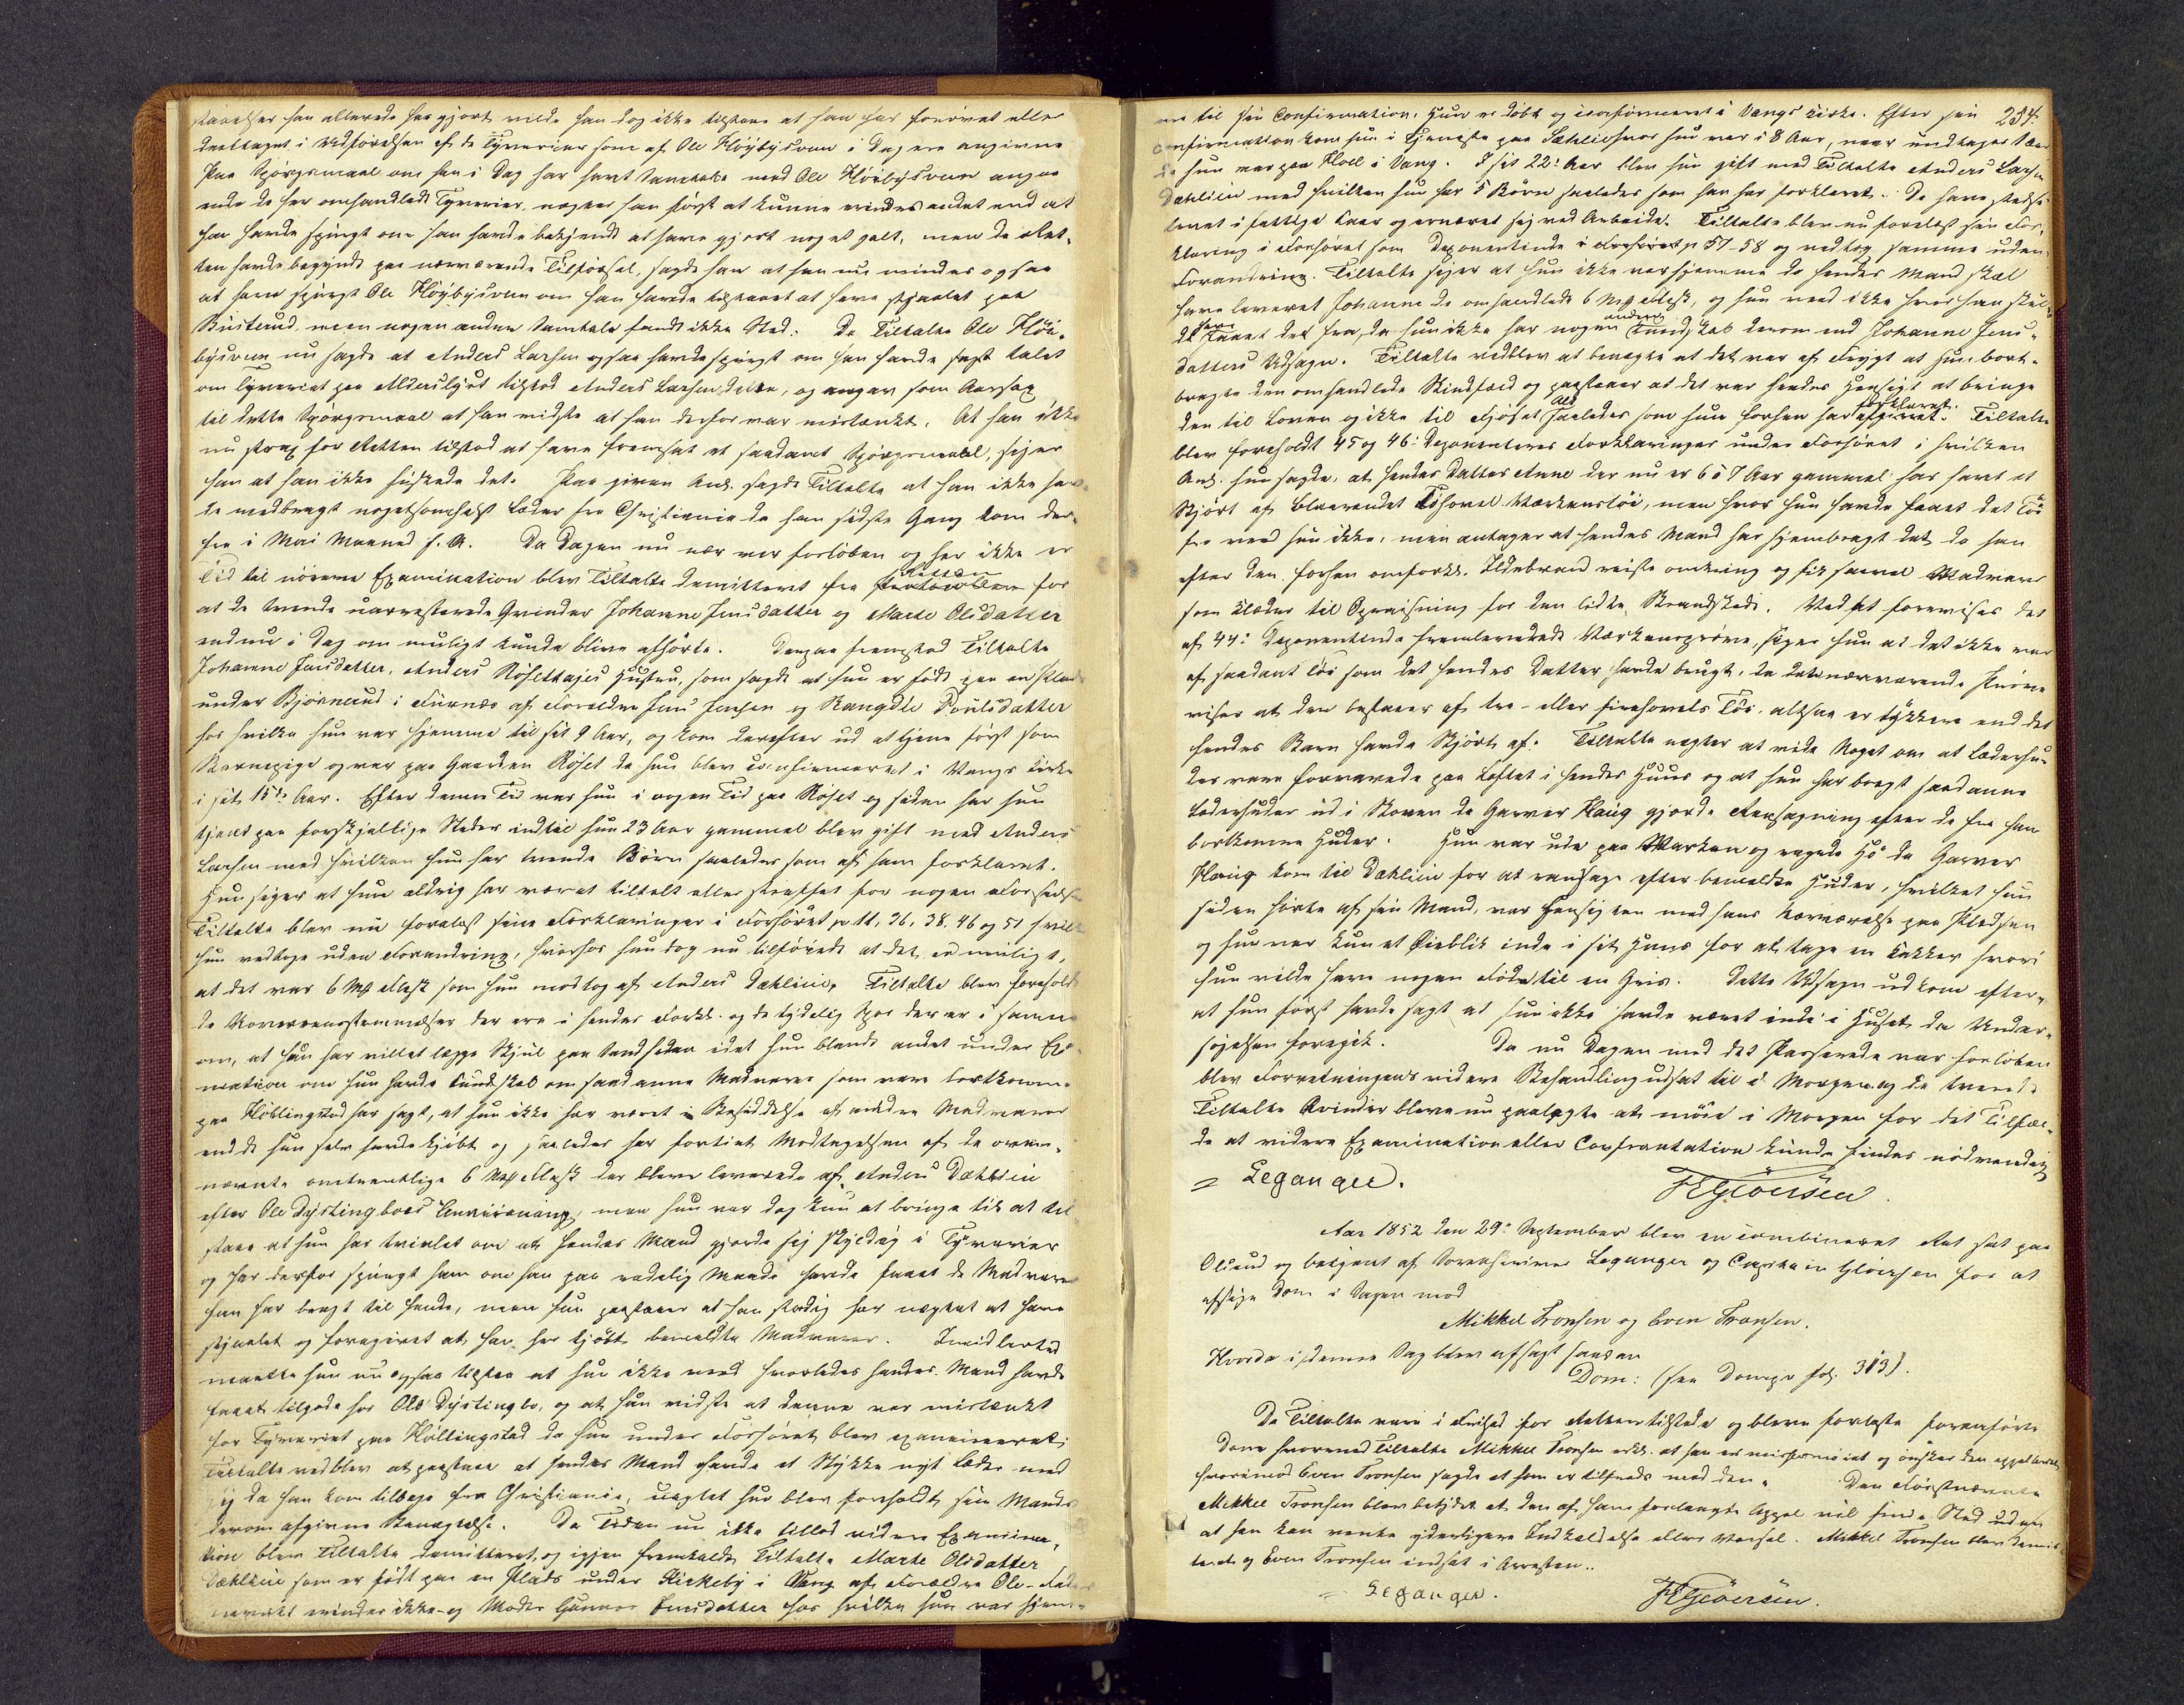 staaelser han allerede har gjort vilde han dog ikke tilstaae at han har forøvet eller
deeltaget i Udførelsen af de Tyverier som af Ole Høybysveen i Dag ere angivne
Paa Spørgsmaal om han i Dag har havt Samtale med Ole Høibysveen angaa
ende de her omhandlede Tyverier, nægter han først at kunne erindre andet end at
han havde spurgt om han havde bekjendt at have gjort noget galt, men da Ret-
ten havde begyndt paa nærværende Tilførsel, sagde han at han nu mindes ogsaa
at have spurgt Ole Høybysveen om han havde tilstaaet at have stjaalet paa
men nogen anden Samtale fandt ikke Sted. Da Tiltalte Ole Høi-
bysveen nu sagde at Anders Larsen ogsaa havde spurgt om han havde talet
om Tyveriet paa tilstod Anders Larsen dette, og angav som Aarsag
til dette Spørgsmaal at han vidste at han derfor var mistænkt. At han ikke
nu strax for Retten tilstod at have fremsat et saadant Spørgsmaal, siger
han at han ikke huskede det. Paa given Anl. sagde Tiltalte at han ikke hav-
de medbragt nogetsomhelst Læder fra Christiania da han sidste Gang kom der-
fra i Mai Maaned f. A. Da Dagen nu nær var forløben og her ikke er
Tid til nøiere Examination blev Tiltalte demitteret fra Retten for
at de tvende uarresterede Qvinder Johanne Jensdatter og Marte Olsdatter
endnu i Dag om muligt kunde blive afhørte. Derpaa fremstod Tiltalte
Johanne Jensdatter, Anders Røhsethages Hustru, som sagde at hun er født paa en Plads
under Bjørnerud i Furnæs af Forældre Jens Jensen og Rangdie Poulsdatter
hos hvilke hun var hjemme til sit 9 Aar, og kom derefter ud at tjene først som
Barnepige og var paa Gaarden Røhset da hun blev confirmeret i Vangs Kirke
i sit 15de Aar. Efter denne Tid var hun i nogen Tid paa Røhset og siden har hun
tjent paa forskjellige Steder indtil hun 23 Aar gammel blev gift med Anders
Larsen med hvilken hun har tvende Børn saaledes som af ham forklaret.
Hun siger at hun aldrig har været tiltalt eller straffet for nogen Forseelse
Tiltalte blev nu forelæst sine Forklaringer i Forhøret p 11, 36, 38, 46 og 51 hvilke
hun vedtog uden Forandring, hvorhos hun dog nu tilføiede at det er muligt,
at det var 6 Mk Flesk som hun modtog af Anders Dæhlien. Tiltalte blev foreholdt
de Uoverensstemmelser der ere i hendes Forkl. og de tydelig Spor der er i samme
om, at hun har villet lægge Skjul paa Sandheden idet hun blandt andet under Exa-
mination om hun havde Kundskab om saadanne Madvarer som vare bortkomne
paa Kollingstad har sagt, at hun ikke har været i Besiddelse af andre Madvarer
end de hun selv havde kjøbt og saaledes har fortiet Modtagelsen af de oven-
nævnte omtrentlige 6 Mk Flesk der bleve leverede af Anders Dæhlien
efter Ole Dystingboes Anviisning, men hun var dog kun at bringe til at til
staae at hun har tvivlet om at hendes Mand gjorde sig skyldig i Tyverier
og har derfor spurgt ham om han paa redelig Maade havde faaet de Madvarer
han har bragt til hende, men hun paastaaer at han stadig har nægtet at have
stjaalet og foregivet at han har kjøbt bemeldte Madvarer. Imidlertid
maatte hun nu ogsaa tilstaa at hun ikke veed hvorledes hendes Mand havde
faaet tilgode hos Ole Dystingbo, og at hun vidste at denne var mistænkt
for Tyveriet paa Kollingstad da hun under Forhøret blev examineret.
Tiltalte vedblev at paastaae at hendes Mand havde et Stykke nyt Læder med
sig da han kom tilbage fra Christiania, uagtet hun blev foreholdt sin Mands
derom afgivne Benægtelse. Da Tiden nu ikke tillod videre Examina-
tion blev Tiltalte demitteret, og igjen fremkaldt Tiltalte Marte Olsdatter
Dæhlien som er født paa en Plads under Kirkeby i Vang af Forældre Ole - Fader
navnet erindres ikke - og Moder Gunnor Jensdatter hos hvilke hun var hjem-
234.
me til sin Confirmation. Hun er døbt og confirmeret i Vangs Kirke. Efter sin
Confirmation kom hun i Tjeneste paa Dæhlie hvor hun var i 8 Aar, naar undtages
da hun var paa Hoel i Vang. I sit 22: Aar blev hun gift med Tiltalte Anders Larsen
Dæhlien med hvilken hun har 5 Børn saaledes som han har forklaret. De have stedse
levet i fattige Kaar og ernæret sig ved Arbeide. Tiltalte blev nu forelæst sin For-
klaring i Forhøret som Deponentinde i Forhøret p 57-58 og vedtog samme uden
Forandring. Tiltalte siger at hun ikke var hjemme da hendes Mand skal
have leveret Johanne de omhandlede 6 Mk Flesk, og hun veed ikke hvor han skul-
de have faaet det fra, da hun ikke har nogen anden Kundskab derom end Johanne Jens-
datters Udsagn. Tiltalte vedblev at benægte at det var af Frygt at hun bort-
bragte den omhandlede Skindfæld og paastaaer at det var hendes Hensigt at bringe
den til Laaven og ikke til Fjøset Alt saaledes som hun forhen har forklaret. Tiltalte
blev foreholdt 45 og 46: Deponenters Forklaringer under Forhøret i hvilken
Anl. hun sagde, at hendes Datter Anne der nu er 6 à 7 Aar gammel har havt et
Skjørt af blaarendet Tohovel Værkenstøi, men hvor hun havde faaet det Tøi
fra veed hun ikke, men antager at hendes Mand har hjembragt det, da han
efter den forhen omforkl. Ildebrand reiste omkring og fik saavel Madvarer
som Klæder til Opreisning for den lidte Brandskade. Ved at forevises det
af 44: Deponentinde fremleverede Værkensprøve, siger hun at det ikke var
af saadant Tøi som det hendes Datter havde brugt, da det nærværende Prøve
viser at den bestaaer af tre- eller firehovels Tøi, altsaa er tykkere end det
hendes Barn havde Skjørt af. Tiltalte nægter at vide Noget om at Læderhu-
der vare forvarede paa Loftet i hendes Huus og at hun har bragt saadanne
Læderhuder ud i Skoven da Garver Haug gjorde Ransagning efter de fra ham
bortkomne Huder. Hun var ude paa Marken og ragede Hø da Garver
Haug kom til Dæhlien for at ransage efter bemeldte Huder, hvilket hun
siden hørte af sin Mand, var Hensigten med hans Nærværelse paa Pladsen
og hun var kun et Øieblik inde i sit Huus for at tage en Kakker hvori
hun vilde have nogen Føde til en Gris. Dette Udsagn udkom efter-
at hun først havde sagt at hun ikke havde været inde i Huset, da Under-
søgelsen foregik. Da nu Dagen med det Passerede var forløben
blev Forretningens videre Behandling udsat til i Morgen og de tvende
Tiltalte Qvinder bleve nu paalagte at møde i Morgen for det Tilfæl-
de at videre Examination eller Confrontation kunde findes nødvendig
= Leganger.
Aar 1852 den 29: September blev en combineret Ret sat paa
Olsrud og betjent af Sorenskriver Leganger og Capitain Gløersen for at
afsige Dom i Sagen mod
Mikkel Tronsen og Even Tronsen.
Hvorda i denne Sag blev afsagt saadan
Dom: (see Domspr fol. 313).
De Tiltalte vare i Frihed for Retten tilstede og bleve forelæste foranførte
Dom hvorved Tiltalte Mikkel Tronsen erkl. at han er misfornøiet og ønsker den appelleret,
hvorimod Even Tronsen sagde at han er tilfreds med den. Den Førstnævnte
Mikkel Tronsen blev betydet at den af ham forlangte Appel vil finde Sted uden
at han kan vente yderligere Indkaldelse eller Varsel. Mikkel Tronsen blev demit-
teret og Even Tronsen indsat i Arresten.
= Leganger.